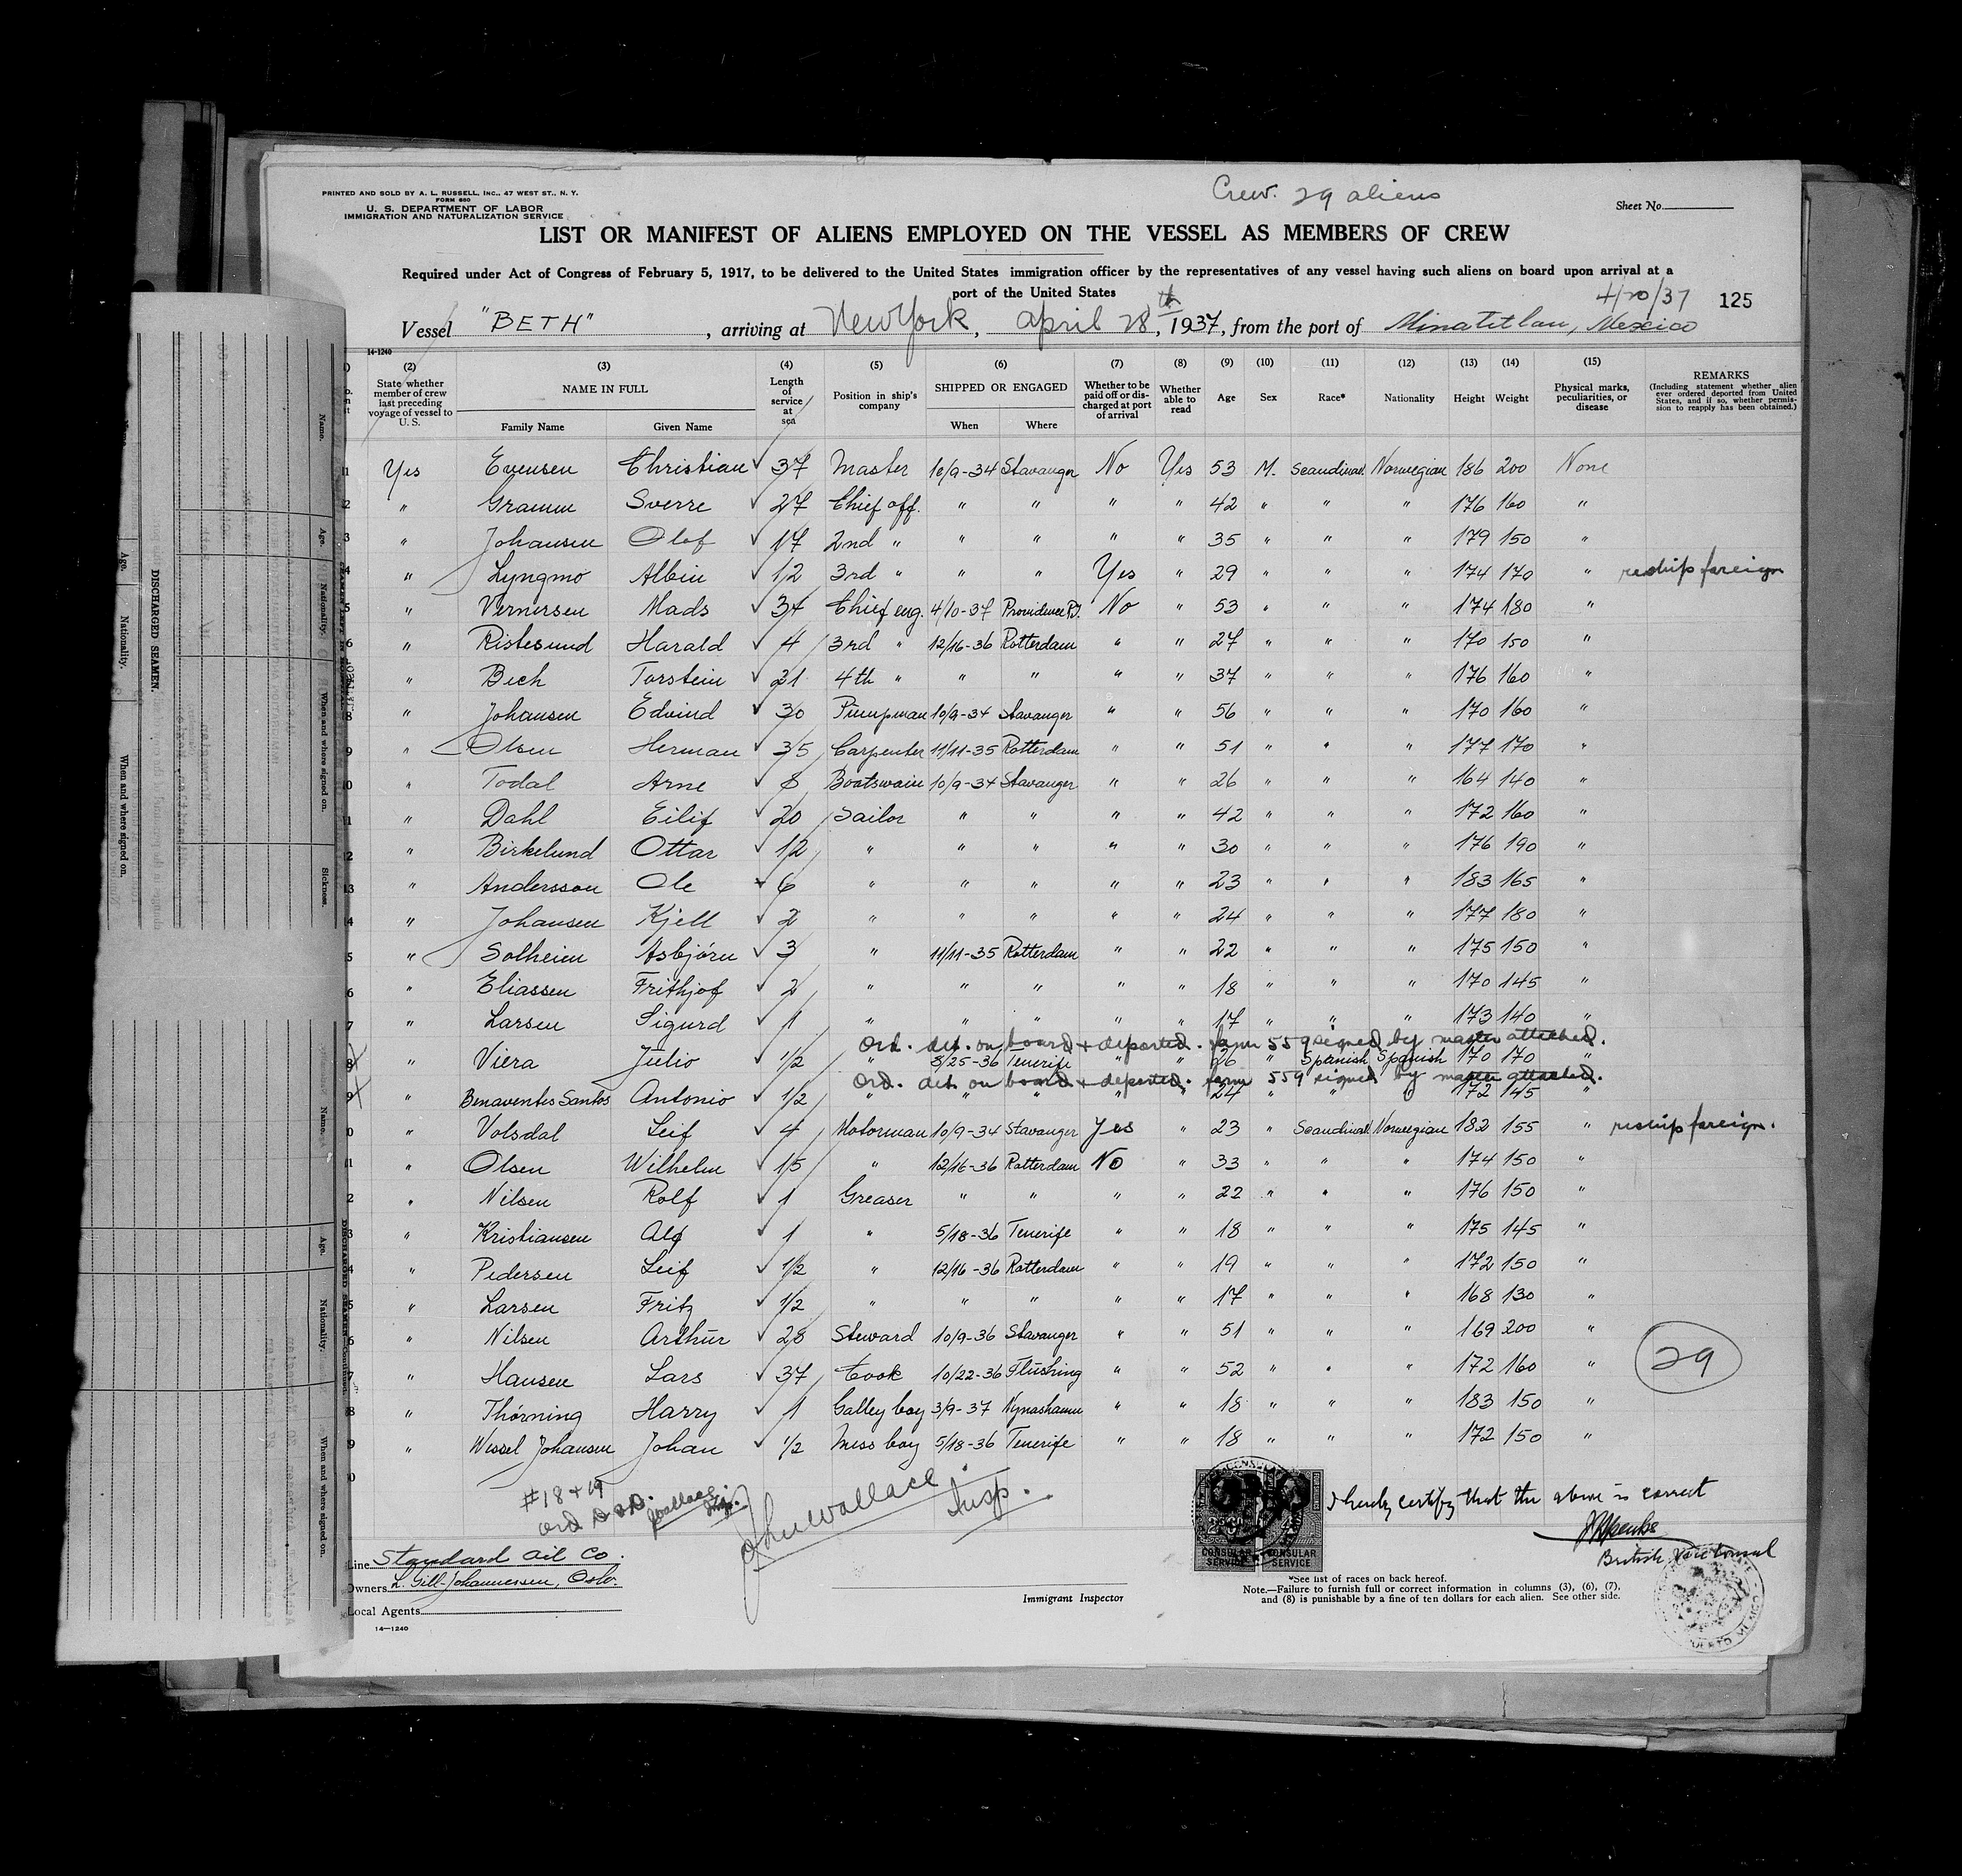 Crew. 29 aliens
PRINTED AND SOLD BY A. L. RUSSELL, INC., 47 WEST ST., N. Y.
FORM 680
U. S. DEPARTMENT OF LABOR
IMMIGRATION AND NATURALIZATION SERVICE
Sheet No.
LIST OR MANIFEST OF ALIENS EMPLOYED ON THE VESSEL AS MEMBERS OF CREW
Required under Act of Congress of February 5, 1917, to be delivered to the United States immigration officer by the representatives of any vessel having such aliens on board upon arrival at a
port of the United States
4/20/37 125
Vessel "BETH", arriving at New York, april 28th, 1937, from the port of Minatitlan, Mexico
14-1240
(2) (3) (4) (5) (6) (7) (8) (9) (10) (11) (12) (13) (14) (15)
State whether member of crew last preceding voyage of vessel to U. S.
NAME IN FULL
Family Name Given Name
Length of service at sea
Position in ship's company
SHIPPED OR ENGAGED
When Where
Whether to be paid off or discharged at port of arrival
Whether able to read
Age Sex Race* Nationality Height Weight
Physical marks, peculiarities, or disease
REMARKS
(Including statement whether alien ever ordered deported from United States, and if so, whether permission to reapply has been obtained.)
1 Yes Evensen Christian 37 Master 10/9-34 Stavanger No Yes 53 M. Scandinav. Norwegian 186 200 None
2 " Gramm Sverre 27 Chief off. " " " " 42 " " " 176 160 "
3 " Johansen Olof 17 2nd " " " " " 35 " " " 179 150 "
4 " Lyngmo Albin 12 3rd " " " Yes " 29 " " " 174 170 " reship foreign
5 " Vernersen Mads 34 Chief eng. 4/10-37 Providence R.I. No " 53 " " " 174 180 "
6 " Ristesund Harald 4 3rd " 12/16-36 Rotterdam " " 27 " " " 170 150 "
" Bech Torstein 21 4th " " " " " 37 " " " 176 160 "
8 " Johansen Edvind 30 Pumpman 10/9-34 Stavanger " " 56 " " " 170 160 "
9 " Olsen Herman 35 Carpenter 11/11-35 Rotterdam " " 51 " " " 177 170 "
0 " Todal Arne 8 Boatswain 10/9-34 Stavanger " " 26 " " " 164 140 "
1 " Dahl Eilif 20 Sailor " " " " 42 " " " 172 160 "
2 " Birkelund Ottar 12 " " " " " 30 " " " 176 190 "
3 " Andersson Ole 6 " " " " " 23 " " " 183 165 "
4 " Johansen Kjell 2 " " " " " 24 " " " 177 180 "
5 " Solheim Asbjórn 3 " 11/11-35 Rotterdam " " 22 " " " 175 150 "
6 " Eliassen Frithjof 2 " " " " " 18 " " " 170 145 "
7 " Larsen Sigurd 1 " " " " " 17 " " " 173 140 "
Ord. det. on board + deported. form 559 signed by master attached.
8 " Viera Julio 1/2 " 8/25-36 Tenerife " " 26 " Spanish Spanish 170 170 "
Ord. det. on board + deported. form 559 signed by master attached.
9 " Benaventes Santos Antonio 1/2 " " " " " 24 " " " 172 145 "
0 " Volsdal Leif 4 Motorman 10/9-34 Stavanger Yes " 23 " Scandinav. Norwegian 182 155 " reship foreign.
1 " Olsen Wilhelm 15 " 12/16-36 Rotterdam No " 33 " " " 174 150 "
2 " Nilsen Rolf 1 Greaser " " " " 22 " " " 176 150 "
3 " Kristiansen Alf 1 " 5/18-36 Tenerife " " 18 " " " 175 145 "
4 " Pedersen Leif 1/2 " 12/16-36 Rotterdam " " 19 " " " 172 150 "
5 " Larsen Fritz 1/2 " " " " " 17 " " " 168 130 "
6 " Nilsen Arthur 28 Steward 10/9-36 Stavanger " " 51 " " " 169 200 "
7 " Hansen Lars 37 Cook 10/22-36 Flushing " " 52 " " " 172 160 "
29
8 " Thórning Harry 1 Galley boy 3/9-37 Nynashamn " " 18 " " " 183 150 "
9 " Wessel Johansen Johan 1/2 Mess boy 5/18-36 Tenerife " " 18 " " " 172 150 "
0
#18 + 19
Ord D & D.
Wallace
Insp.
Jhn Wallace
Insp.
I hereby certify that the above is correct
British Vice Consul
CONSULAR SERVICE CONSULAR SERVICE
Line Standard Oil Co.
Owners L. Gill-Johannessen, Oslo.
Local Agents
Immigrant Inspector
*See list of races on back hereof.
Note.—Failure to furnish full or correct information in columns (3), (6), (7),
and (8) is punishable by a fine of ten dollars for each alien. See other side.
14—1240
DISCHARGED SEAMEN.
Name. Age. Nationality. When and where signed on. Sickness.
Age. Nationality. When and where signed on.
Name. Age. Nationality. When and where signed on.